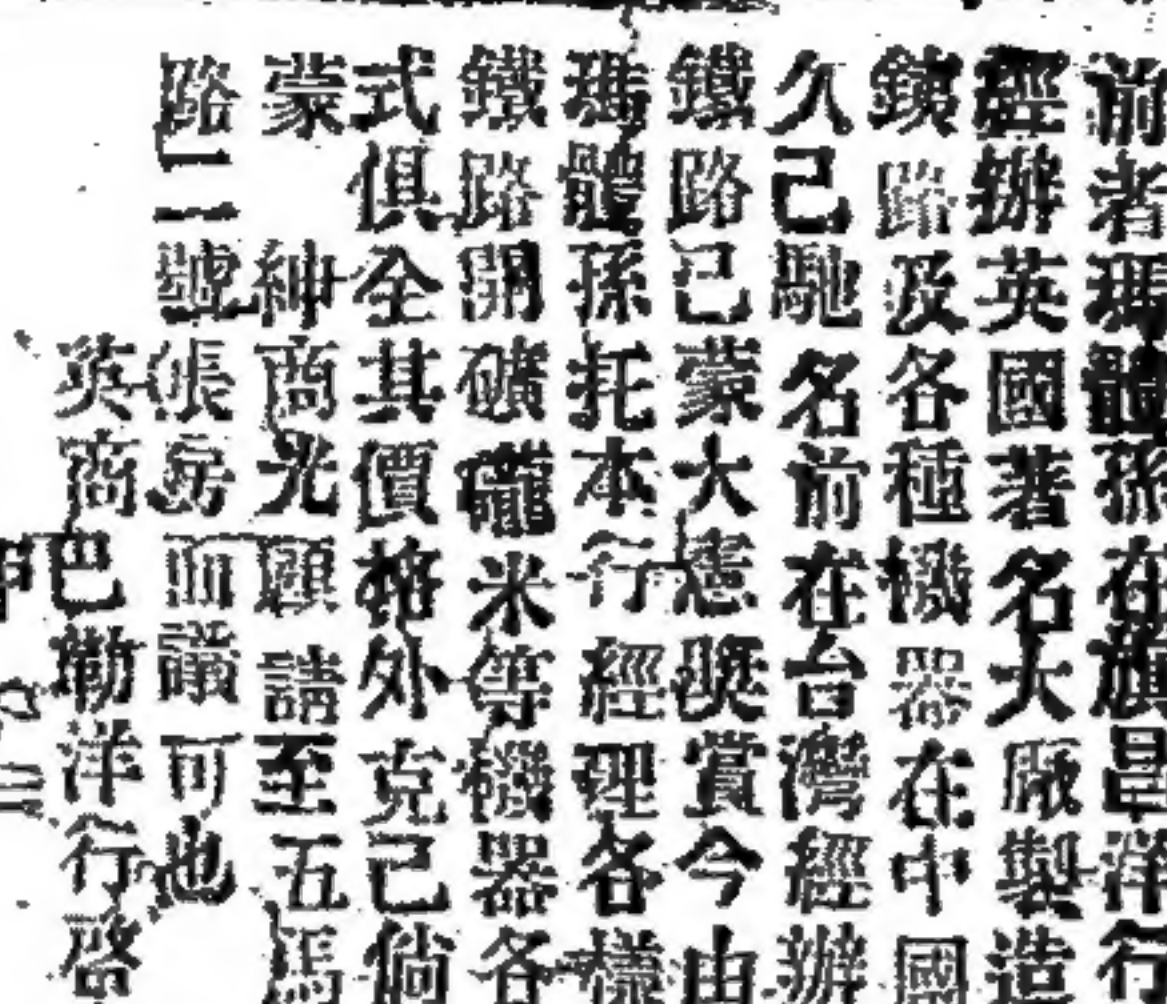 前者瑪體孫在旗昌洋行
經辦英國著名大廠製造
鐵路及各種機器在中國
久已馳名前在台灣經辦
鐵路已蒙大憲奬賞今由
瑪體孫托本行經理各樣
鐵路開礦礲米等機器各
式俱全其價格外克己倘
蒙紳商光顧請至五馬
路二號帳房面議可也
英商巴勒洋行啓